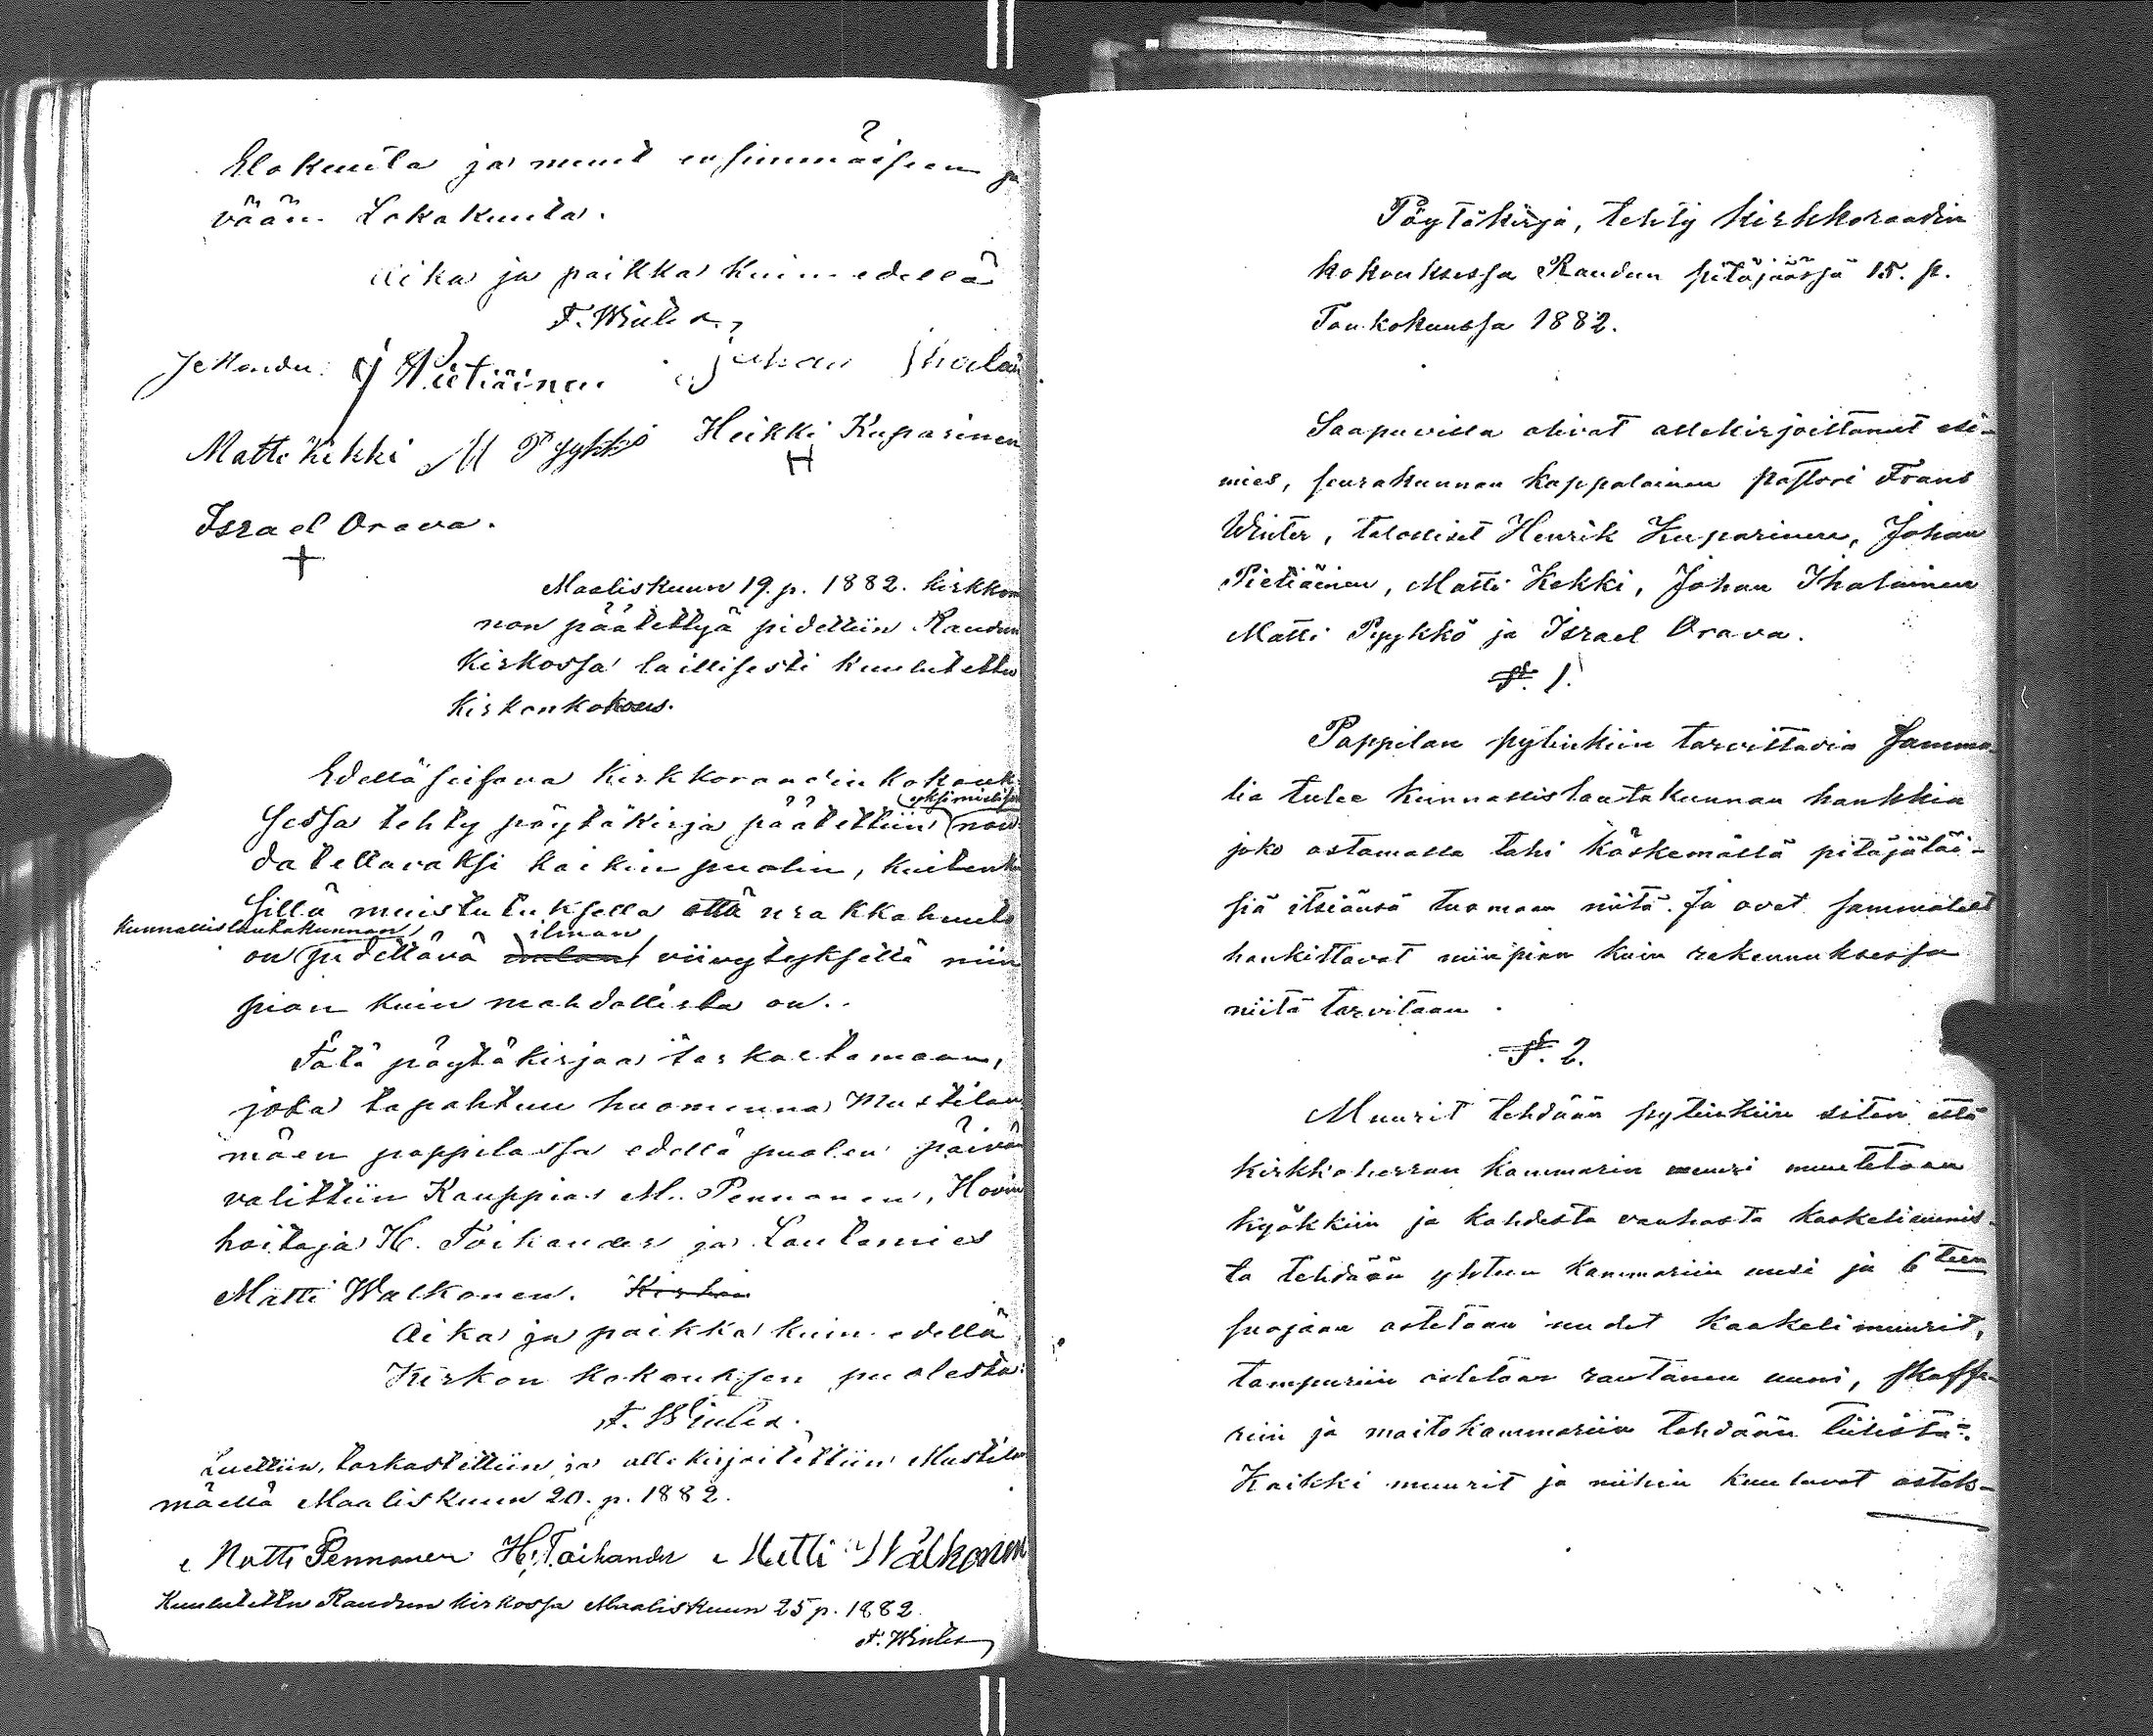 Elokuuta ja muut ensimmäiseen pä
vään Lokakuuta.
Aika ja paikka kuin edellä
F. Winter.
J Pietiäinen Juhan Ihalain
Matti Kekki M Pyykkö Heikki Kuparinen
H
Israel Orava.
+
Maaliskuun 19. p. 1882. kirkkom
non päätettyä pidettiin Raudun
Kirkossa laillisesti kuulutettu
Kirkonkokous.
Edellä seisova Kirkkoraadin kokouk
yksimielises
sessa tehty pöytäkirja päätettiin nou
datettavaksi kaikin puolin, kuitenki
sillä muistutuksella että urakkahuuto
Kunnallislautakunnan ilman
on pidettävä viivytyksettä niin
pian kuin mahdollista on.
Tätä pöytäkirjaa tarkastamaan,
joka tapahtuu huomenna Mustilan
mäen pappilassa edellä puolen päivän
valittiin Kauppias M. Pennanen, Hovin
hoitaja H. Toikander ja Lautamies
Matti Walkonen. Kirkon
Aika ja paikka kuin edellä
Kirkon kokouksen puolesta:
F. Winter.
Luettiin, tarkastettiin ja allekirjoitettiin Mustilan
mäellä Maaliskuun 20. p. 1882.
Matti Pennanen H. Toikander Matti Walkonen
Kuulutettu Raudun kirkossa Maaliskuun 25 p. 1882.
F. Winter
Pöytäkirja, tehty kirkkoraadin
kokouksessa Raudun pitäjäässä 15. p.
Toukokuussa 1882.
Saapuvilla olivat allekirjoittanut esi-
mies, seurakunnan kappalainen pastori Frans
Winter, talolliset Henrik Kuparinen, Johan
Pietiäinen, Matti Kekki, Johan Ihalainen
Matti Pyykkö ja Israel Orava.
§. 1.
Pappilan pytinkiin tarvittavia samma-
lia tulee kunnallislautakunnan hankkia
joko ostamalla tahi käskemällä pitäjäläi-
siä itsiänsä tuomaan niitä. Ja ovat sammalet
hankittavat niinpian kuin rakennuksessa
niitä tarvitaan.
§. 2.
Muurit tehdään pytinkiin siten että
kirkkoherran kammarin muuri muutetaan
kyökkiin ja kahdesta vanhasta kaakeliuunis-
ta tehdään yhteen kammariin uusi ja 6 teen
suojaan ostetaan uudet kaakelimuurit,
tampuriin ostetaan rautanen uuni, skaffe-
riin ja maitokammariin tehdään tiilistä.
Kaikki muurit ja niihin kuuluvat ostok-